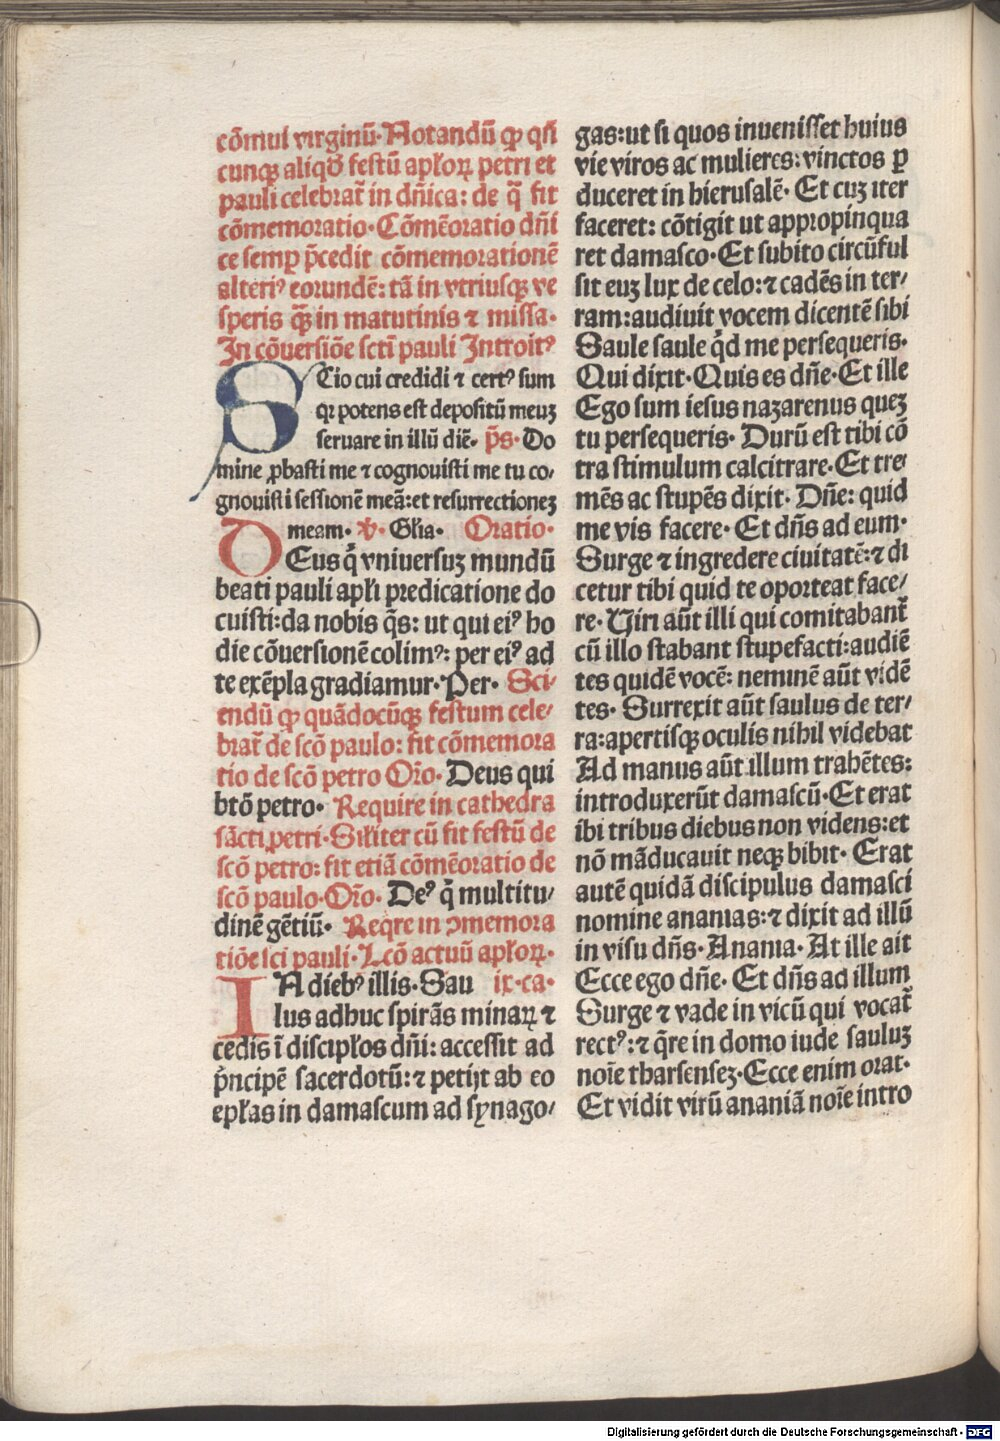 cōmui virginū· Notandū ꝙ qn̄
cunqꝫ aliqd̄ festū apłoꝝ petri et
pauli celebrat᷑ in dn̄ica: de q̄ fit
cōmemoratio· Cōmēoratio dn̄i
ce semꝑ p̄cedit cōmemorationē
alteriꝰ eorundē: tā in vtriusqꝫ ve
speris qꝫ̄ in matutinis ⁊ missa·
In cōuersiōe scti pauli Introitꝰ
SCio cui credidi ⁊ certꝰ sum
qꝛ potens est depositū meuꝫ
seruare in illū diē· p̄s· Do
mine ꝓbasti me ⁊ cognouisti me tu co-
gnouisti sessionē meā: et resurrectioneꝫ
meam· ℣· Gl̄ia· Oratio·
DEus q̄ vniuersuꝫ mundū
beati pauli apłi predicatione do
cuisti: da nobis q̄s: ut qui eiꝰ ho
die cōuersionē colimꝰ: per eiꝰ ad
te exēpla gradiamur· Per· Sci/
endū ꝙ quādocūqꝫ festum cele/
brat᷑ de scō paulo: fit cōmemora
tio de scō petro Orō· Deus qui
btō petro· Require in cathedra
sācti petri· Siłiter cū fit festū de
scō petro: fit etiā cōmēoratio de
scō paulo· Orō· Deꝰ q̄ multitu/
dinē gētiū· Reqre in ꝯmemora
tiōe sci pauli· Lcō actuū apłoꝝ·
IN diebꝰ illis· Sau ix·ca·
lus adhuc spirās minaꝝ ⁊
cedis ī discipłos dn̄i: accessit ad
p̄ncipē sacerdotū: ⁊ petijt ab eo
epłas in damascum ad synago/
gas: ut si quos inuenisset huius
vie viros ac mulieres: vinctos ꝑ
duceret in hierusalē· Et cuꝫ iter
faceret: cōtigit ut appropinqua
ret damasco· Et subito circūful
sit euꝫ lux de celo: ⁊ cadēs in ter/
ram: audiuit vocem dicentē sibi
Saule saule qd̄ me persequeris·
Qui dixit· Quis es dn̄e· Et ille
Ego sum iesus nazarenus queꝫ
tu persequeris· Durū est tibi cō
tra stimulum calcitrare· Et tre
mēs ac stupēs dixit· Dn̄e: quid
me vis facere· Et dn̄s ad eum·
Surge ⁊ ingredere ciuitatē: ⁊ di
cetur tibi quid te oporteat face/
re· Uiri aūt illi qui comitabant᷑
cū illo stabant stupefacti: audiē
tes quidē vocē: neminē aūt vidē
tes· Surrexit aūt saulus de ter/
ra: apertisqꝫ oculis nihil videbat
Ad manus aūt illum trahētes:
introduxerūt damascū· Et erat
ibi tribus diebus non videns: et
nō māducauit neqꝫ bibit· Erat
autē quidā discipulus damasci
nomine ananias: ⁊ dixit ad illū
in visu dn̄s· Anania· At ille ait
Ecce ego dn̄e· Et dn̄s ad illum
Surge ⁊ vade in vicū qui vocat᷑
rectꝰ: ⁊ q̄re in domo iude sauluꝫ
noīe tharsenseꝫ· Ecce enim orat·
Et vidit virū ananiā noīe intro
Digitalisierung gefördert durch die Deutsche Forschungsgemeinschaft - DFG